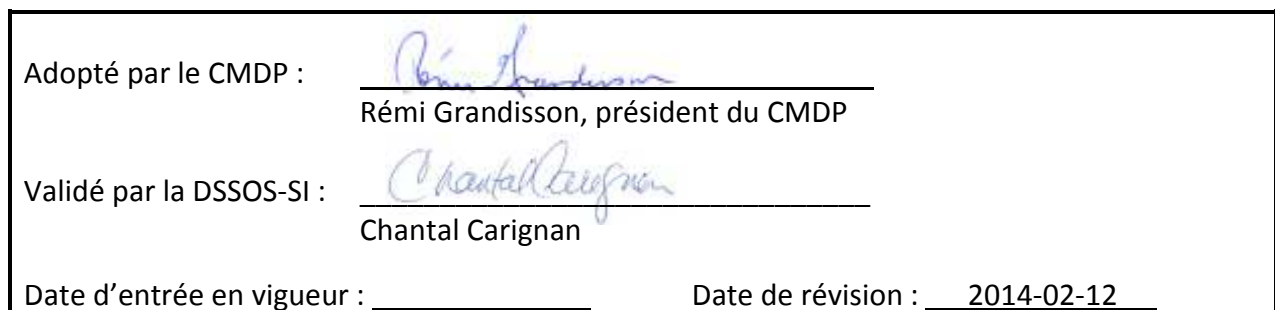 Adopté par le CMDP : Rémi Grandisson
Rémi Grandisson, président du CMDP
Validé par la DSSOS-SI : Chantal Carignan
Chantal Carignan
Date d’entrée en vigueur : ____________ Date de révision : 2014-02-12